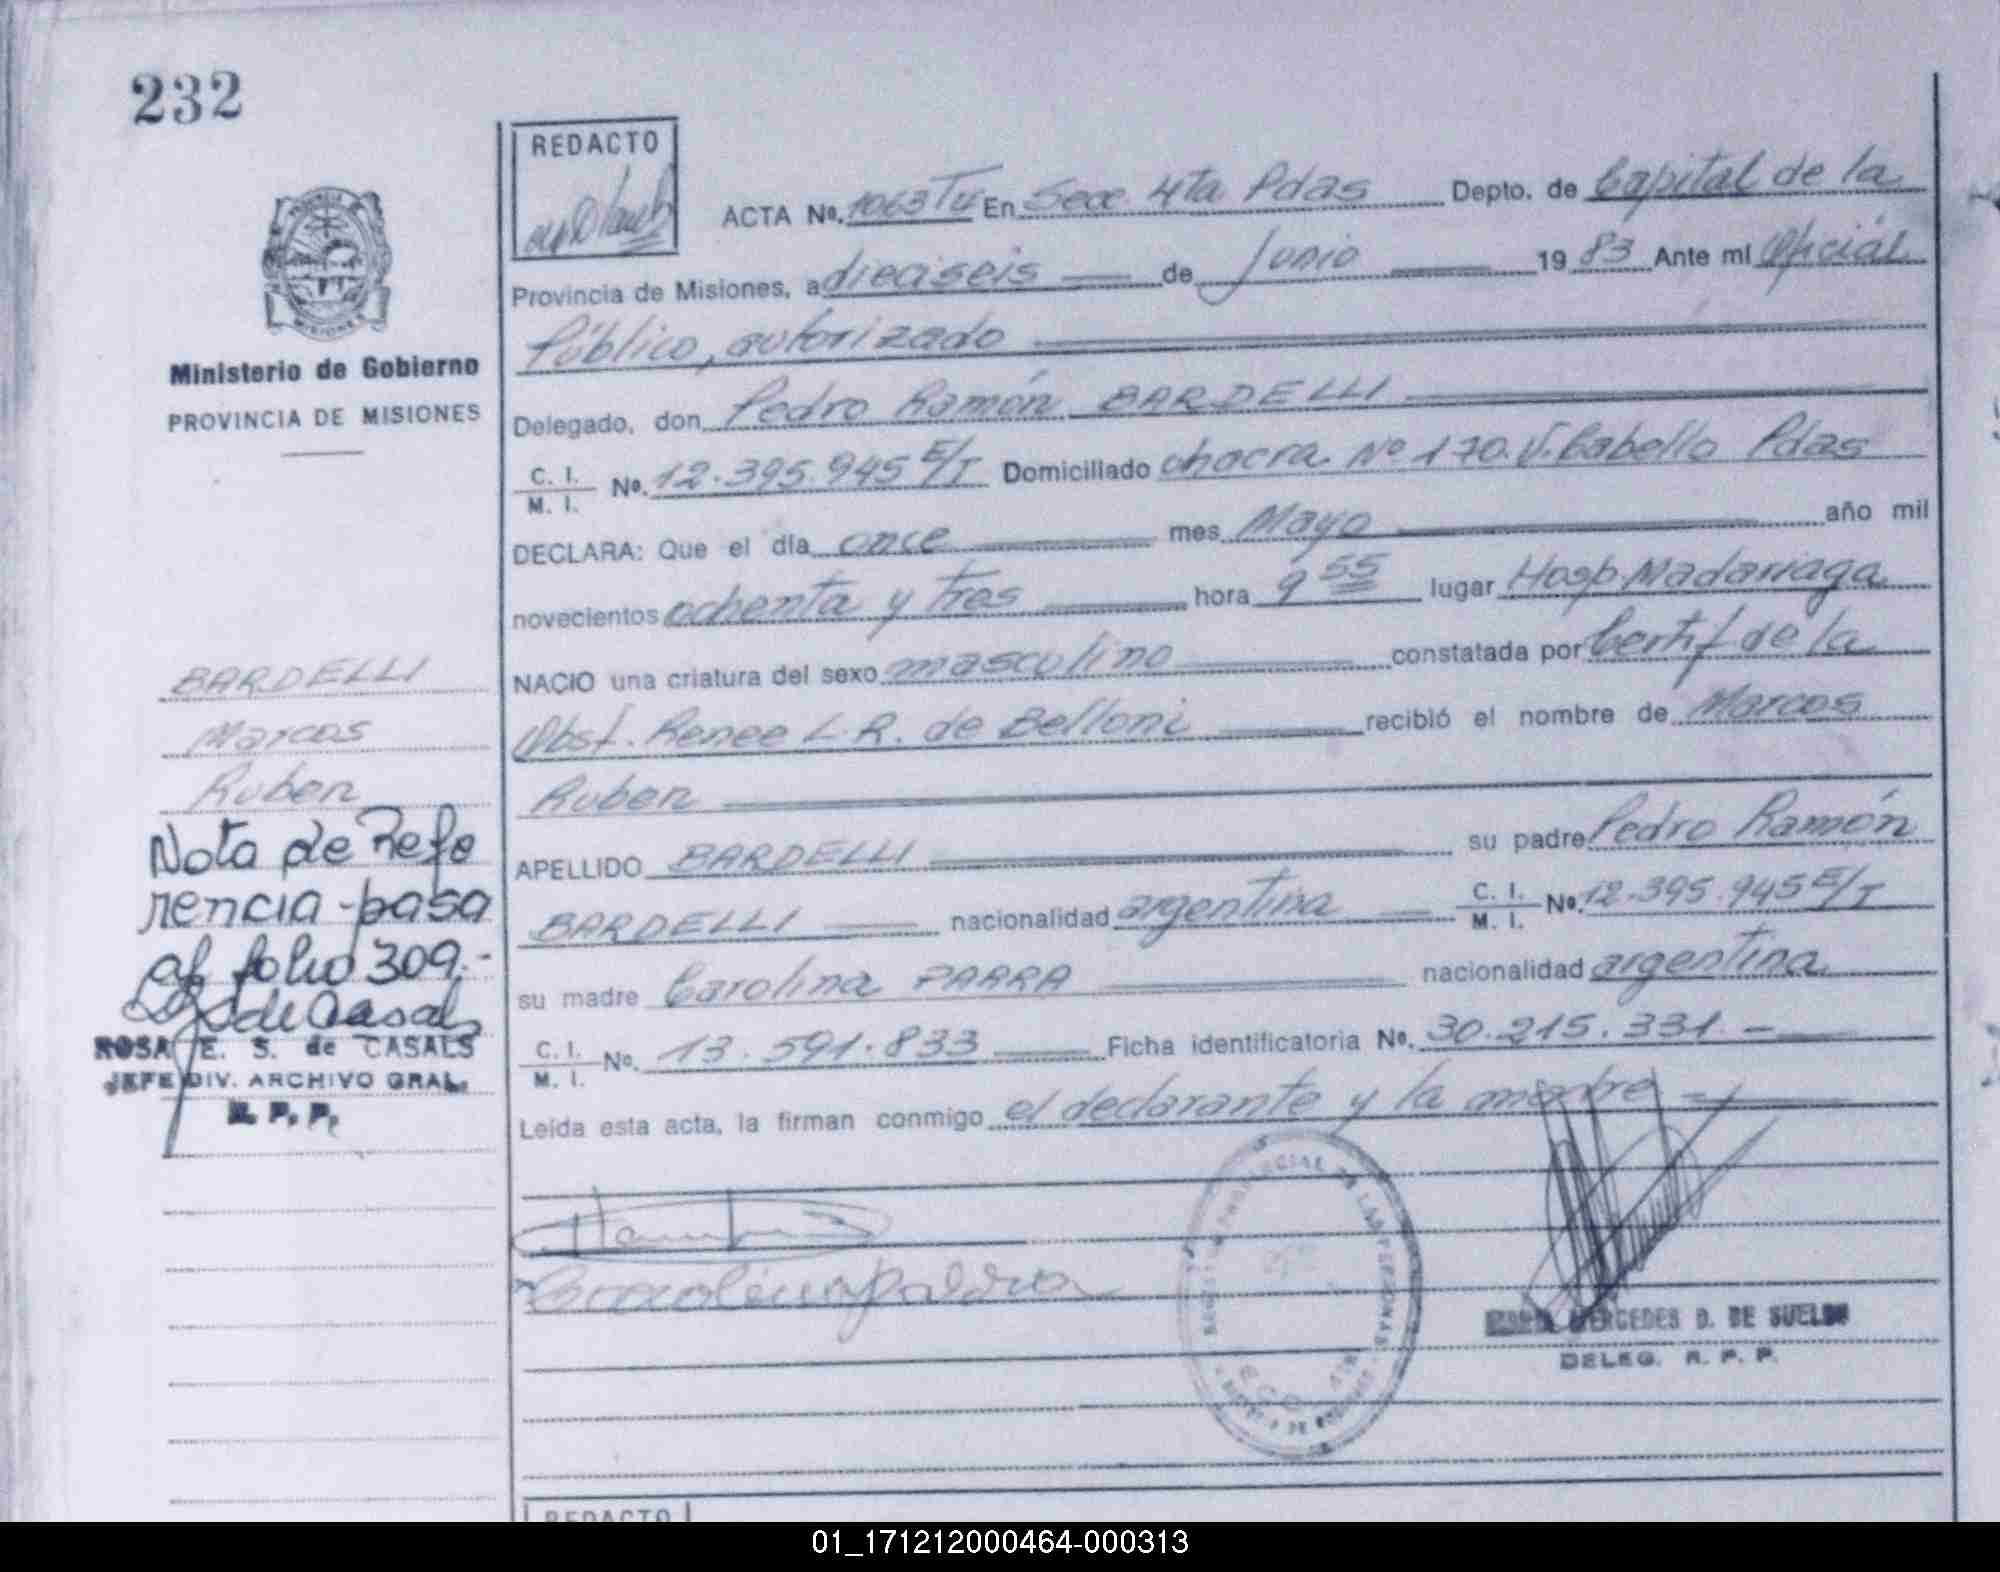 232
REDACTO
ACTA No. 1063 TU En Secc 4ta Pdas Depto. de Capital de la
Provincia de Misiones, a dieciseis de Junio 19 83 Ante mí Oficial
Público, autorizado
Delegado, don Pedro Ramón BARDELLI
C. I. / M. I. No. 12.395.945 E/T Domiciliado chacra Nº 170. V. Cabello Pdas
DECLARA: Que el día once mes Mayo año mil
novecientos ochenta y tres hora 9 55 lugar Hosp. Madariaga
NACIO una criatura del sexo masculino constatada por Certif de la
Obst. Renee L. R. de Belloni recibió el nombre de Marcos
Ruben
APELLIDO BARDELLI su padre Pedro Ramón
BARDELLI nacionalidad argentina C. I. / M. I. No. 12.395.945 E/T
su madre Carolina PARRA nacionalidad argentina
C. I. / M. I. No. 13.591.833 Ficha identificatoria No. 30.215.331 -
Leída esta acta, la firman conmigo el declarante y la madre
MERCEDES D. DE
DELEG. R. P. P.
MISIONES
Ministerio de Gobierno
PROVINCIA DE MISIONES
BARDELLI
Marcos
Ruben
Nota de Refe
rencia - pasa
al folio 309.-
ROSA E. S. de CASALS
JEFE DIV. ARCHIVO GRAL.
R. P. P.
REDACTO
01_171212000464-000313